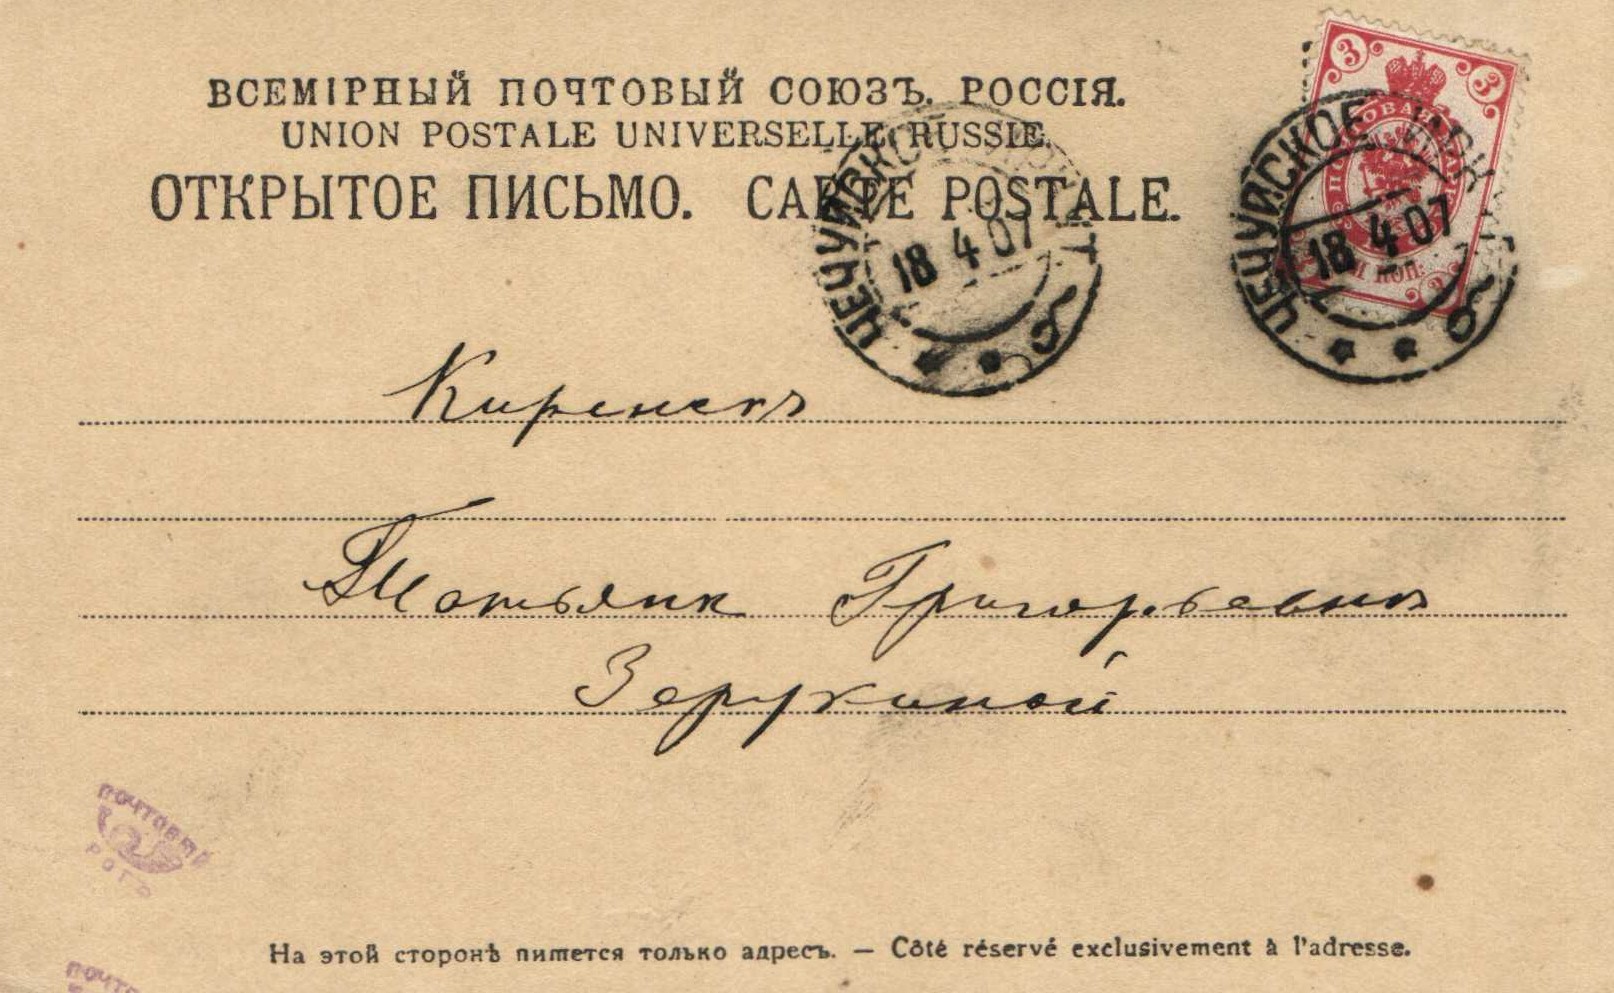 ВСЕМІРНЫЙ ПОЧТОВЫЙ СОЮЗЪ. РОССІЯ.
UNION POSTALE UNIVERSELLE RUSSIE.
ОТКРЫТОЕ ПИСЬМО. CARTE POSTALE.
3 3
ЧЕЧУЙСКОЕ
18 4 07
б
ЧЕЧУЙСКОЕ
18 4 07
б
Киренскъ
Татьянѣ Григорьевнѣ
Зерухиной
ПОЧТОВЫЙ
РОГЪ
На этой сторонѣ пишется только адресъ. — Côté réservé exclusivement à l'adresse.